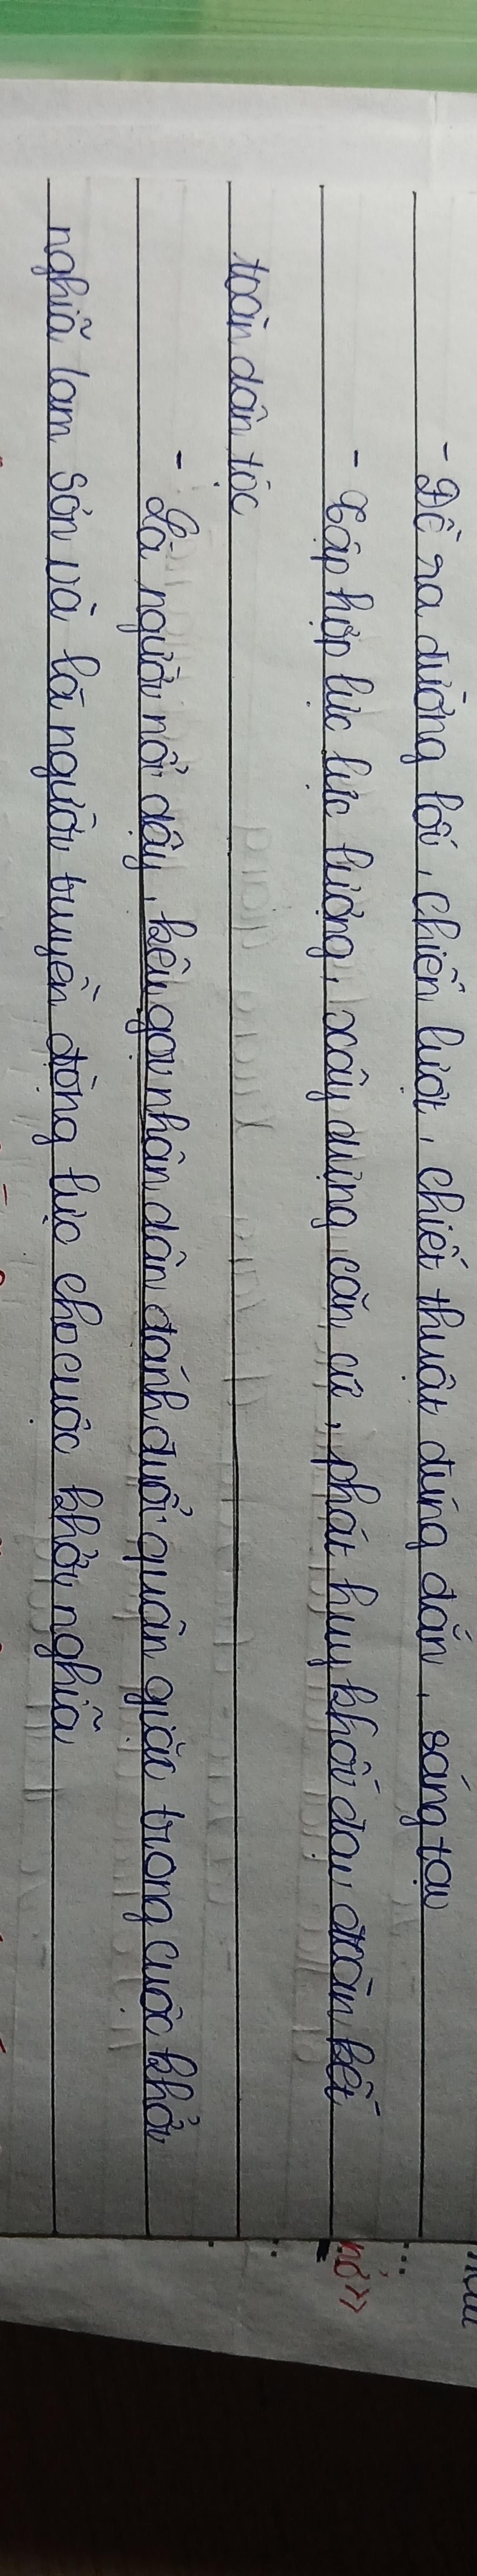 - Đề ra đường lối, chiến lượt, chiết thuật đúng đắn, sáng tạo
- Tập hợp lực lực lượng, xây dựng căn cứ, phát huy khối đại đoàn kết
toàn dân tộc
- Là người nổi dậy, kêu gọi nhân dân đánh đuổi quân giặc trong cuộc khởi
nghĩã lam sơn và là người truyền động lực cho cuộc khởi nghĩã